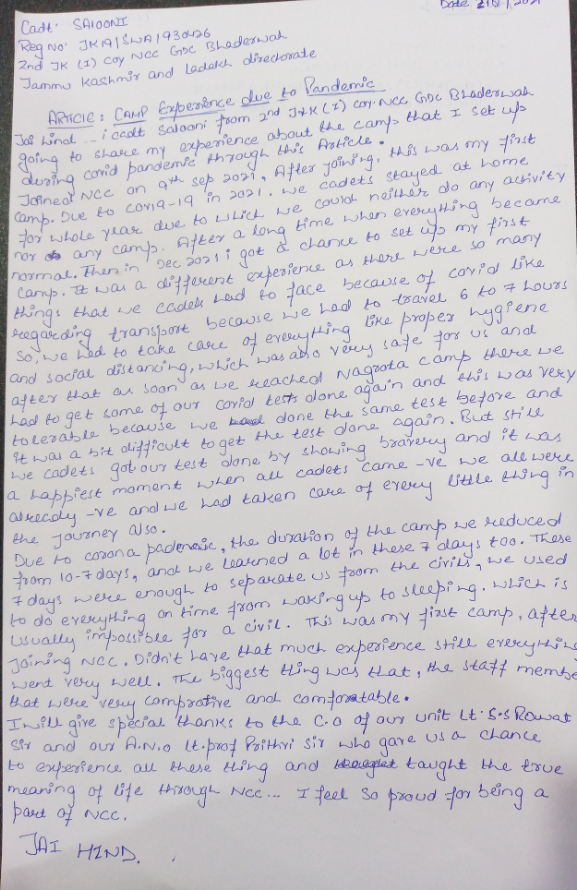 Cadt: SALOONI
Reg No: JK19/SWA/930426
2nd JK (I) coy NCC GDC Bhaderwah
Jammu Kashmir and Ladakh directorate
Date 2021
ARTICLE: CAMP Experience due to Pandemic
Jai hind... i cadt Salooni from 2nd J&K (I) coy. NCC GDC Bladerwah
going to share my experience about the camp that I set up
during covid pandemic through this Article.
Joined NCC on 9th sep 2021, After joining, this was my first
camp. Due to covid-19 in 2021. we cadets stayed at home
for whole year due to which we could neither do any activity
nor any camp. After a long time when everything became
normal. Then in Dec 2021 i got a chance to set up my first
camp. It was a different experience as there were so many
things that we cadets had to face because of covid like
regarding transport because we had to travel 6 to 7 hours
so, we had to take care of everything like proper hygiene
and social distancing, which was also very safe for us and
after that as soon as we reached Nagrota camp there we
had to get some of our covid tests done again and this was very
tolerable because we done the same test before and
it was a bit difficult to get the test done again. But still
we cadets got our test done by showing bravery and it was
a happiest moment when all cadets came -ve we all were
already -ve and we had taken care of every little thing in
the journey also.
Due to corona pademic, the duration of the camp we reduced
from 10-7 days, and we learned a lot in these 7 days too. These
7 days were enough to separate us from the civils, we used
to do everything on time from waking up to sleeping. which is
usually impossible for a civil. This was my first camp, after
Joining NCC. Didn't have that much experience still everything
went very well. The biggest thing was that, the staff membe
that were very comprotive and comforatable.
I will give special thanks to the C.O of our unit Lt. S.S Rawat
Sir and our A.N.O Lt. prof Prithvi Sir who gave us a chance
to experience all these thing and taught the true
meaning of life through NCC... I feel so proud for being a
part of NCC.
JAI HIND.